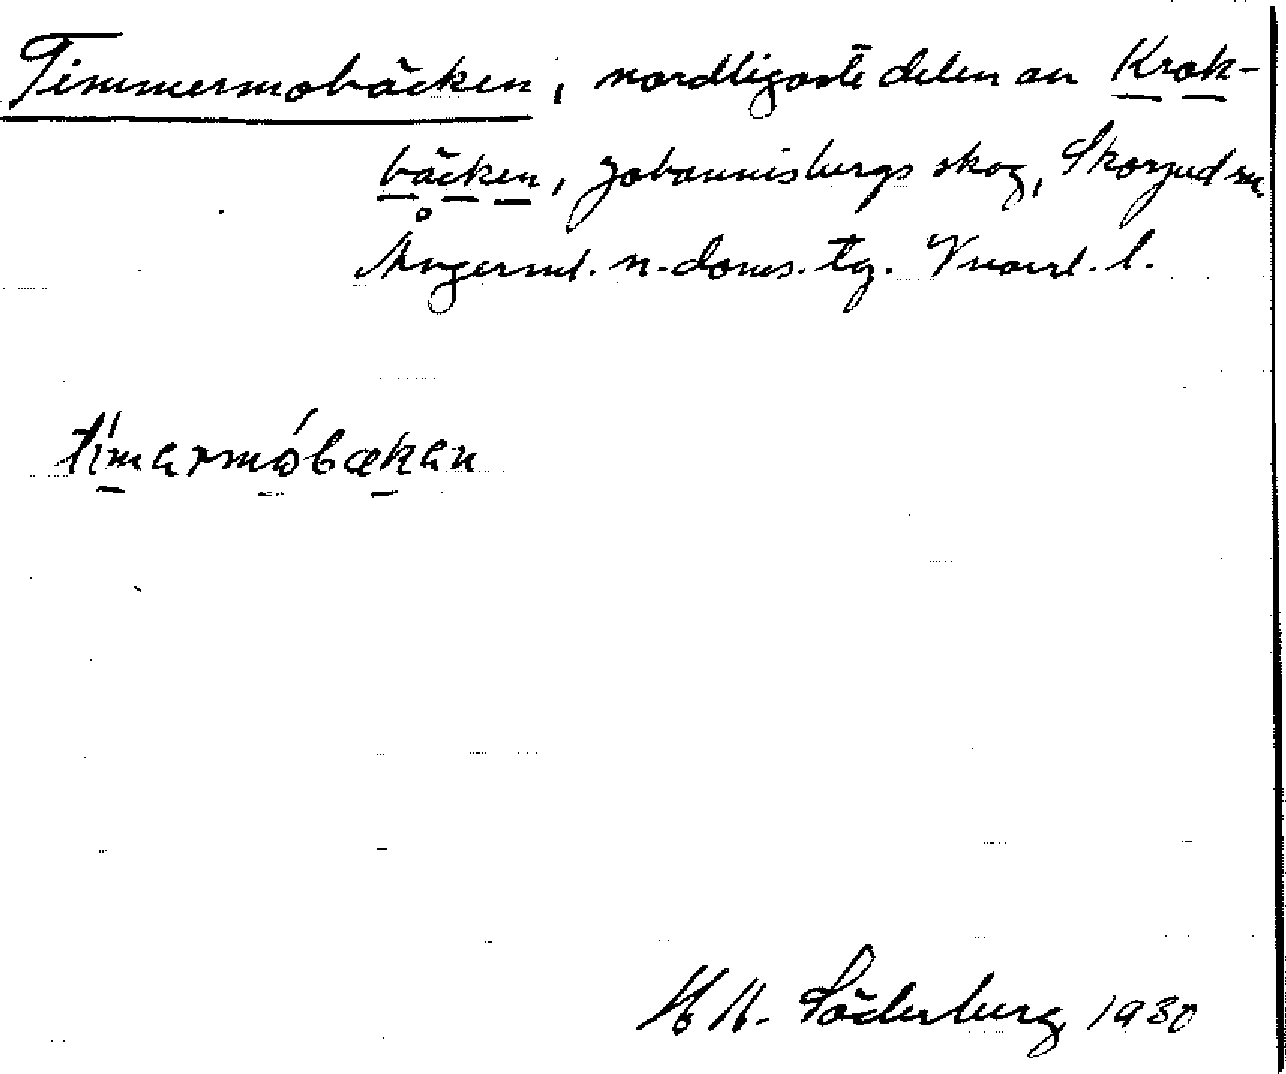 Timmermobäcken, nordligaste delen av Krok-
bäcken, Johannisbergs skog, Skorped sn.
Ångerml. n. doms. tg. Vnorrl. l.
tímarmóbækan
Söderberg 1930